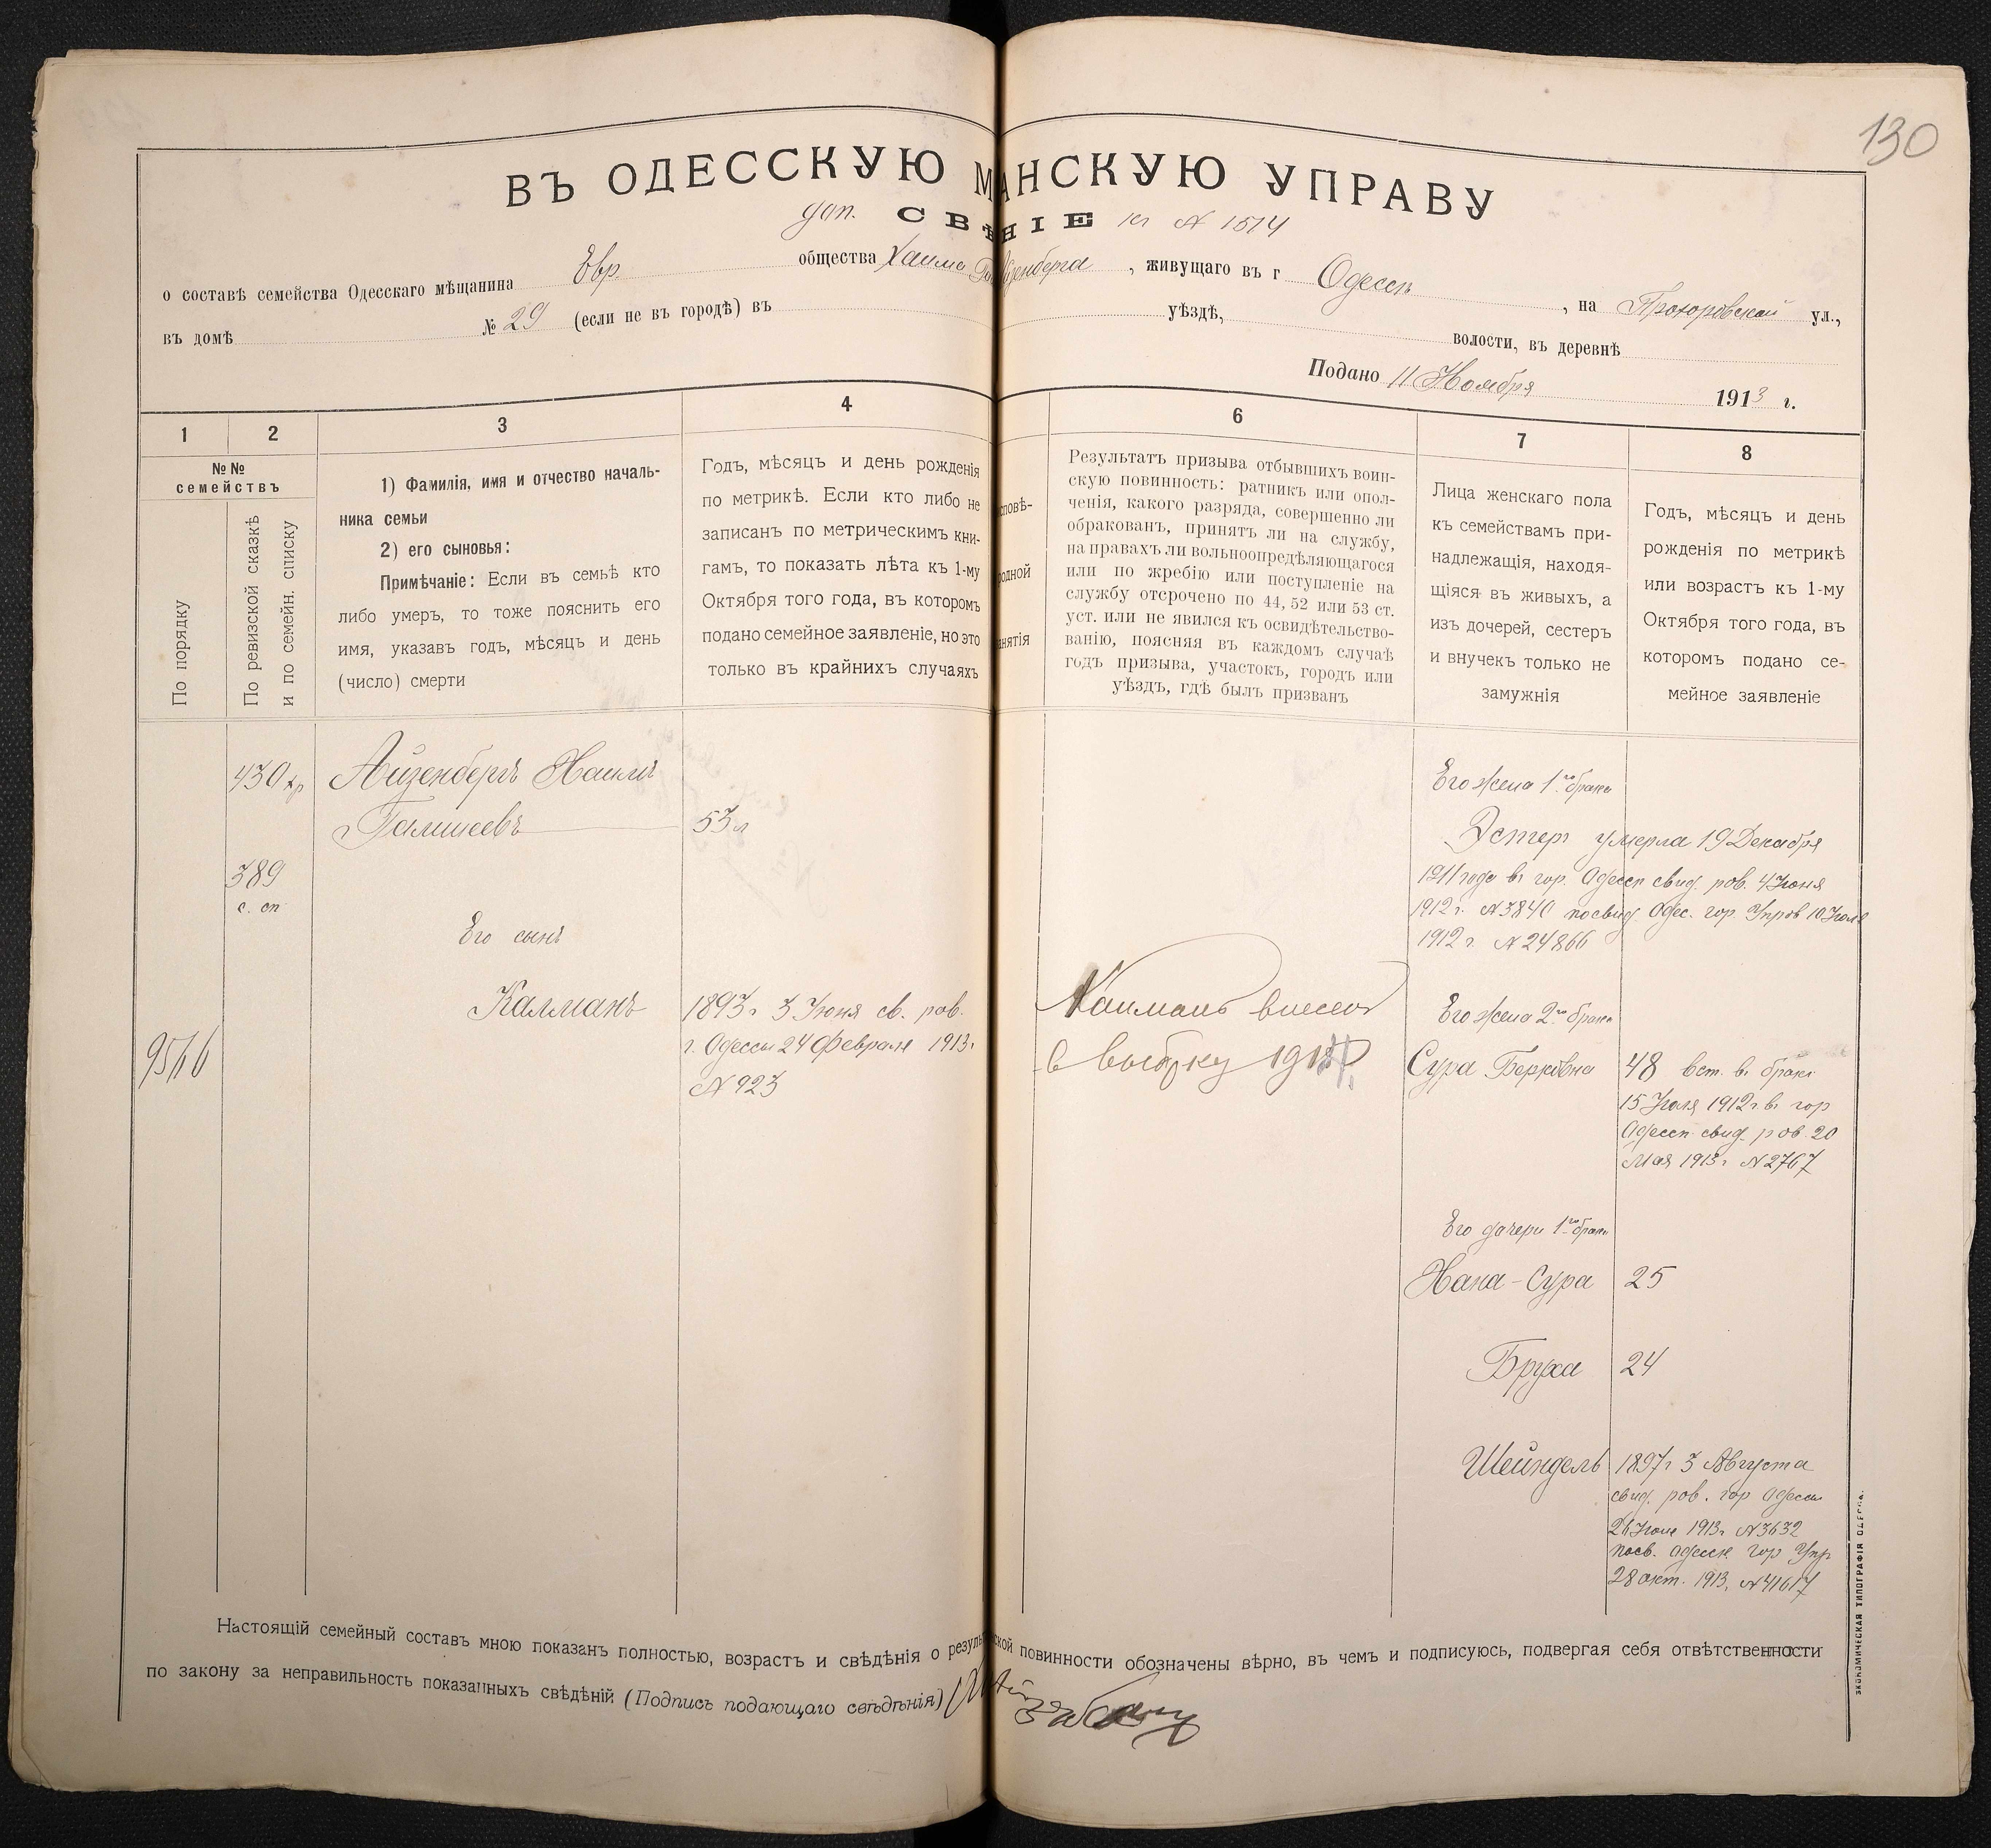 130
ВЪ ОДЕССКУЮ М АНСКУЮ УПРАВУ
доп. СВѢ НІЕ к № 1514
о составѣ семейства Одесскаго мѣщанина Евр. общества Хаима Айзенберга, живущаго въ г Одессѣ, на Прохоровской ул.,
въ домѣ № 29 (если не въ городѣ) въ уѣздѣ, волости, въ деревнѣ
Подано 11 Ноября 1913 г.
1 2 3 4 6 7 8
№№ семействъ
По порядку
По ревизской сказкѣ
и по семейн. списку
1) Фамилія, имя и отчество началь-
ника семьи
2) его сыновья:
Примѣчаніе: Если въ семьѣ кто
либо умеръ, то тоже пояснить его
имя, указавъ годъ, мѣсяцъ и день
(число) смерти
Годъ, мѣсяцъ и день рожденія
по метрикѣ. Если кто либо не
записанъ по метрическимъ кни-
гамъ, то показать лѣта къ 1-му
Октября того года, въ которомъ
подано семейное заявленіе, но это
только въ крайнихъ случаяхъ
сповѣ-
родной
анятія
Результатъ призыва отбывшихъ воин-
скую повинность: ратникъ или опол-
ченія, какого разряда, совершенно ли
обракованъ, принятъ ли на службу,
на правахъ ли вольноопредѣляющагося
или по жребію или поступленіе на
службу отсрочено по 44, 52 или 53 ст.
уст. или не явился къ освидѣтельство-
ванію, поясняя въ каждомъ случаѣ
годъ призыва, участокъ, городъ или
уѣздъ, гдѣ былъ призванъ
Лица женскаго пола
къ семействамъ при-
надлежащія, находя-
щіяся въ живыхъ, а
изъ дочерей, сестеръ
и внучекъ только не
замужнія
Годъ, мѣсяцъ и день
рожденія по метрикѣ
или возрастъ къ 1-му
Октября того года, въ
которомъ подано се-
мейное заявленіе
430 кр
Айзенбергъ Хаимъ
Гамшеевъ
53 л
389
с. сп
Его сынъ
Калманъ
1893 г 3 Іюня св. рав.
г. Одессы 24 Февраля 1913 г
№ 923
9566
Калманъ внесен
в выборку 1914
Его жена 1го брака
Эстеръ умерла 19 Декабря
1911 года въ гор. Одессѣ свид. рав. 4 Іюня
1912 г. № 3840 посвид. Одес. гор. Управ 10 Іюля
1912 г. № 24866
Его жена 2го брака
Сура Берковна
48 вст. въ бракъ
15 Іюля 1912 г. въ гор
Одессѣ свид. рав. 20
Мая 1913 г № 2767
Его дочери 1го брака
Хана-Сура 25
Бруха 24
Шейндель
1897 г 3 Августа
свид. рав. гор Одессы
26 Іюля 1913 г № 3632
посв. Одесск. гор Упр
28 окт. 1913, № 41617
Настоящій семейный составъ мною показанъ полностью, возрастъ и свѣдѣнія о резуль ской повинности обозначены вѣрно, въ чемъ и подписуюсь, подвергая себя отвѣтственности
по закону за неправильность показанныхъ свѣдѣній (Подпись подающаго свѣдѣнія)
ЭКОНОМИЧЕСКАЯ ТИПОГРАФІЯ ОДЕССА.